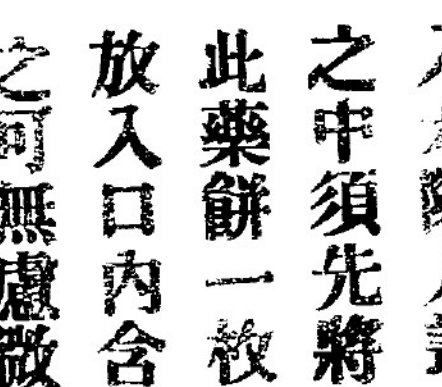 之中須先將
此藥餅一枚
放入口內含
之可無慮微